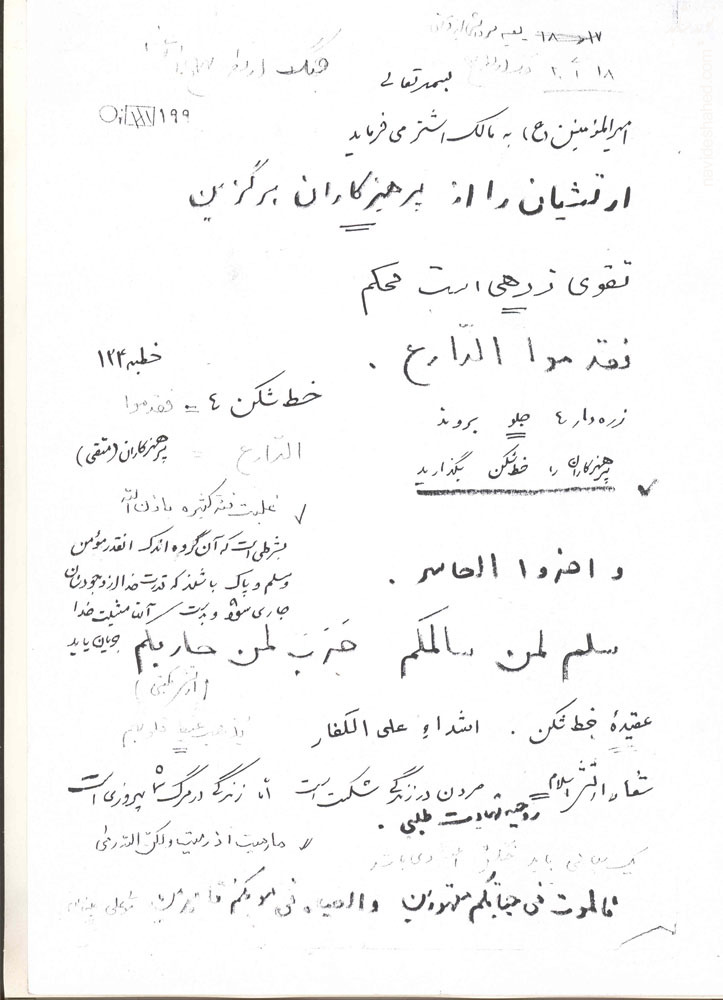 بسمه تعالی
امیرالمؤمنین (ع) به مالک اشتر می فرماید
ارتشیان را از پرهیزکاران برگزین
تقوی زرهی است محکم
فقدموا الدّارع .
خطبه ۱۲۴
خط شکن
فقدموا
زره دار
جلو بروند
الدّارع = پرهیزکاران (متقی)
پرهیزکاران را خط شکن بگذارید
غلبت فئة کثیرة باذن الله
بشرطی است که آن گروه اندک آنقدر مؤمن
و سلم و پاک باشند که قدرت خدا از وجودشان
جاری شود و بدست آنان مشیت خدا
جریان یابد
و اخروا الحاسر .
سلم لمن سالمکم حرب لمن حاربکم
عقیدهٔ خط شکن . اشداء علی الکفار
شعار ارتش اسلام = مردن در زندگی شکست است اما زندگی در مرگ پیروزی است
روحیه شهادت طلبی .
ما رمیت اذ رمیت ولکن الله رمی
فالموت فی حیاتکم مقهورین والحیاة فی موتکم قاهرین
navideshahed.com